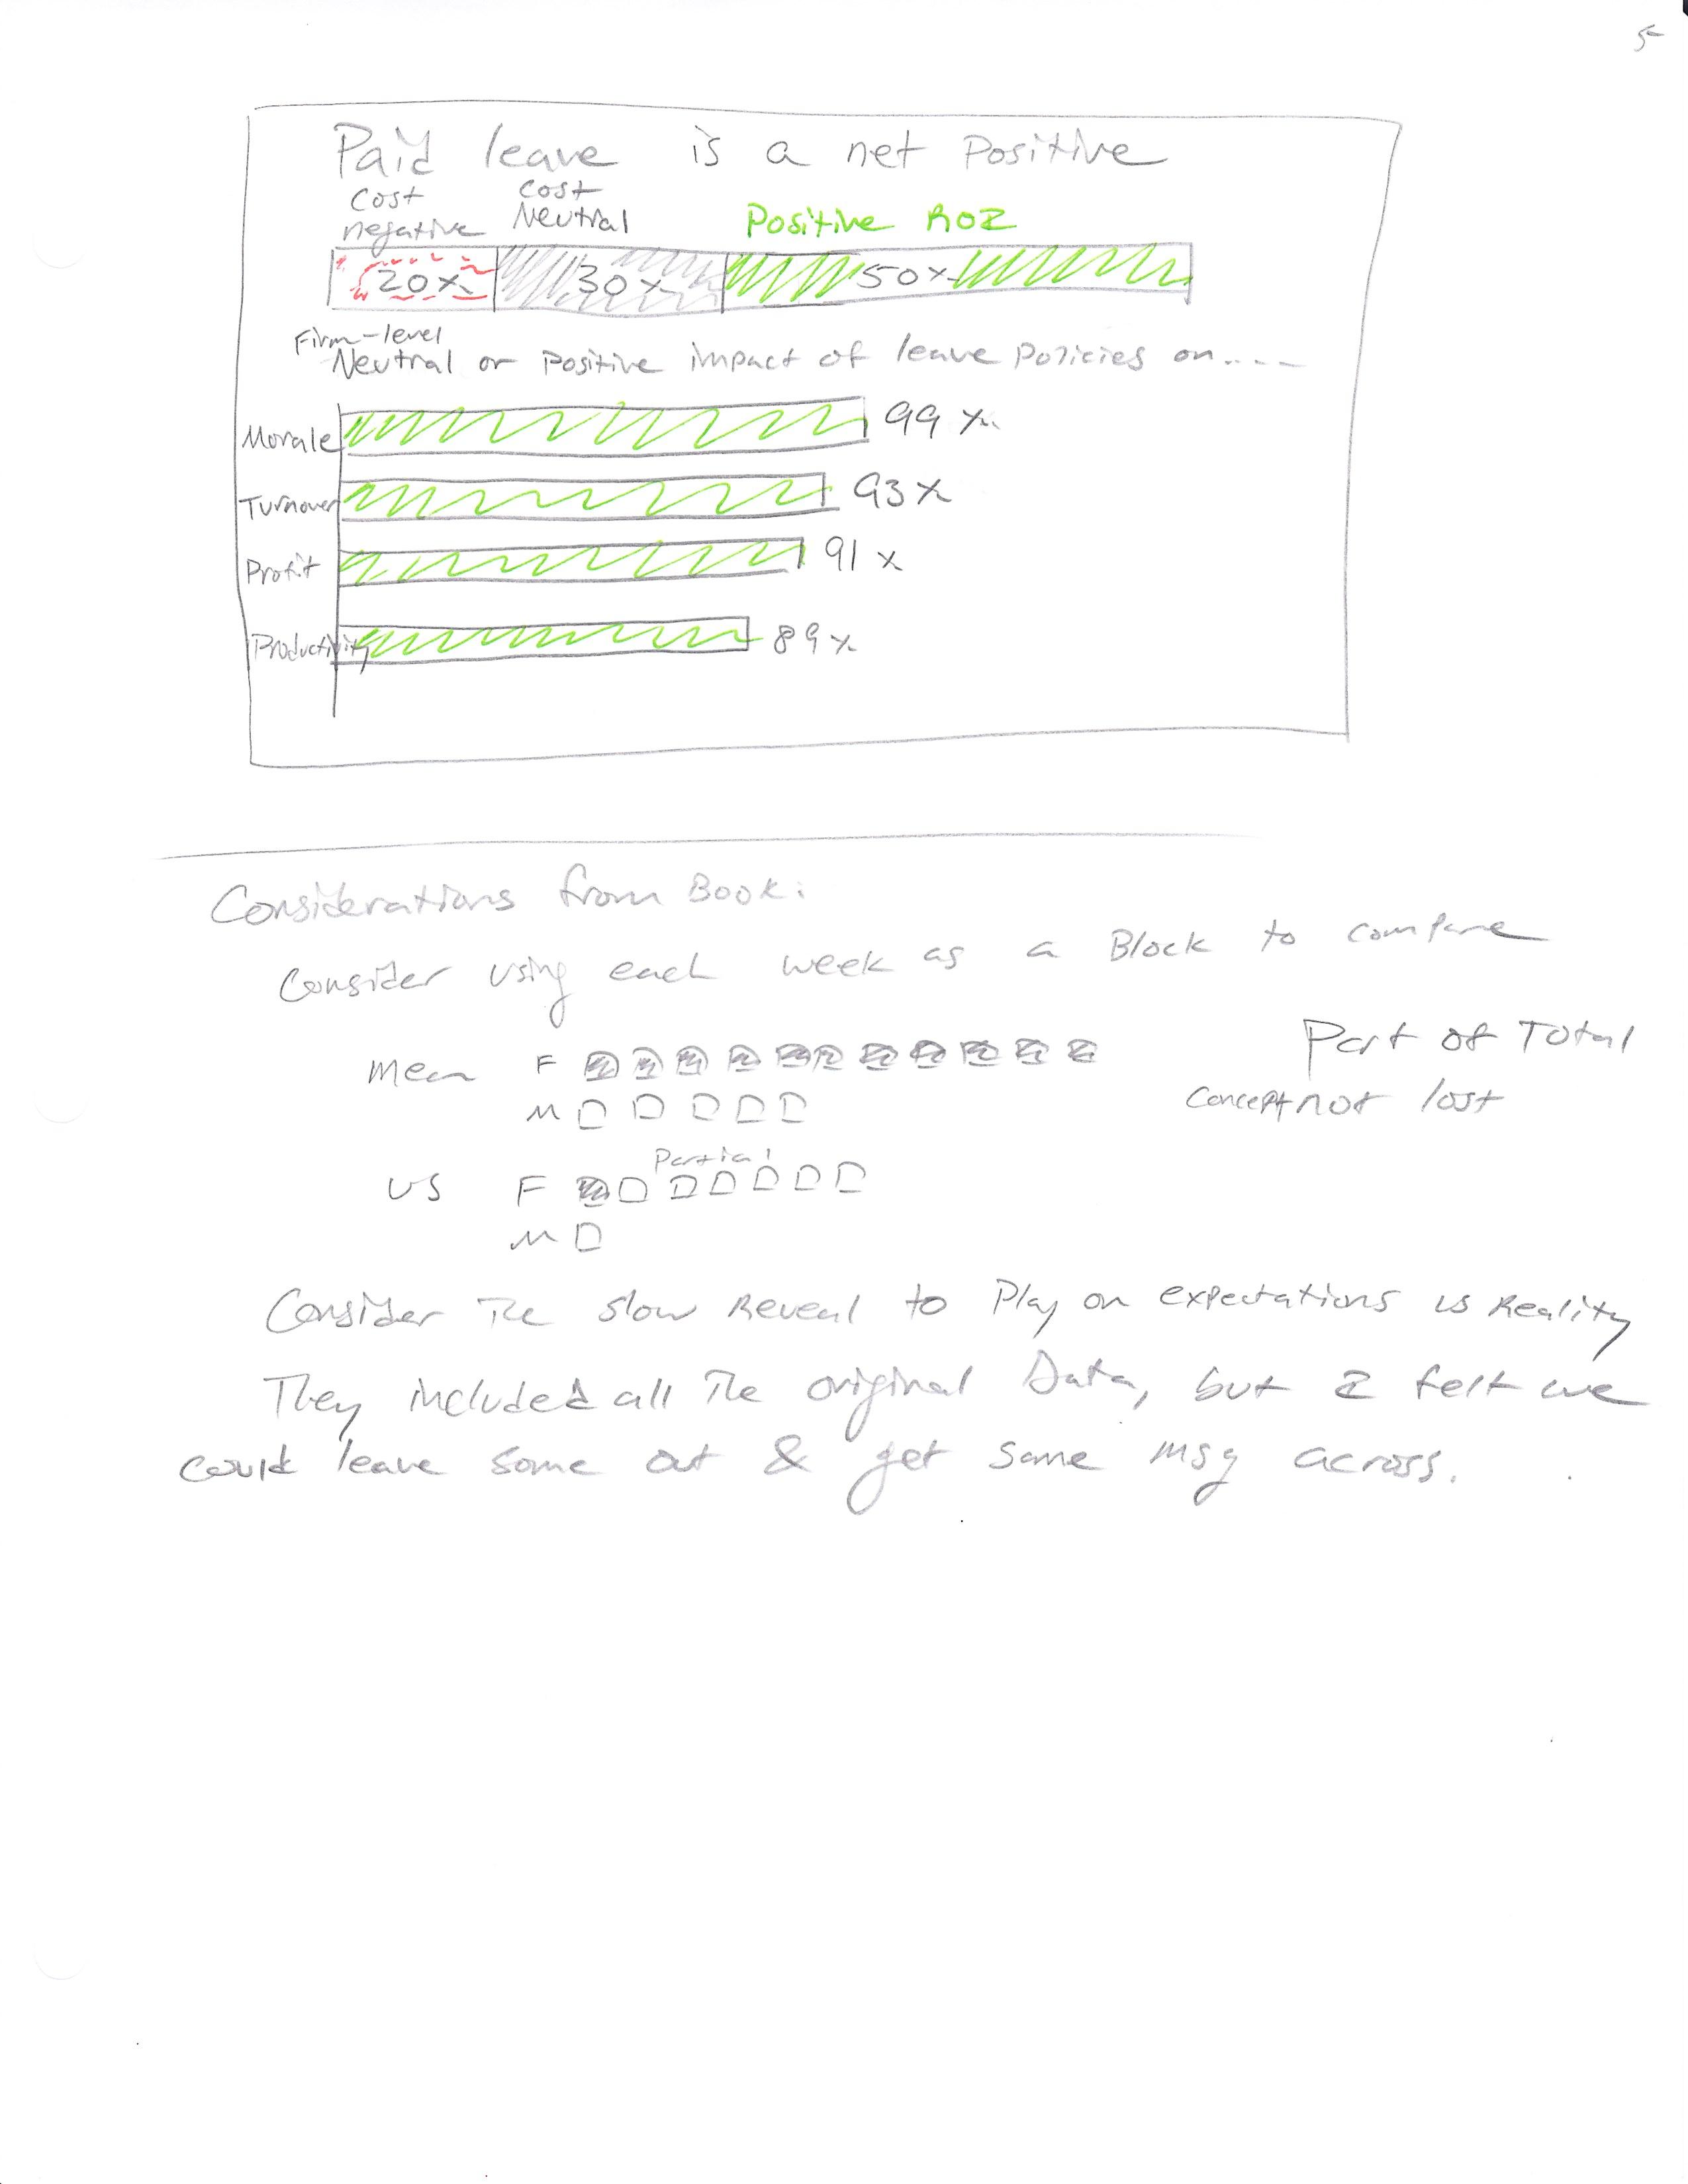 5
Paid leave is a net Positive
Cost negative
Cost Neutral
Positive ROI
20%
30%
50%
Firm-level
Neutral or Positive impact of leave Policies on....
Morale 99%
Turnover 93%
Profit 91%
Productivity 89%
Considerations from Book:
Consider using each week as a Block to compare
Mean F
M
Part of Total
Concept not lost
Partial
US F
M
Consider The slow Reveal to Play on expectations vs Reality
They included all The original Data, but I felt we
could leave some out & get same msg across.